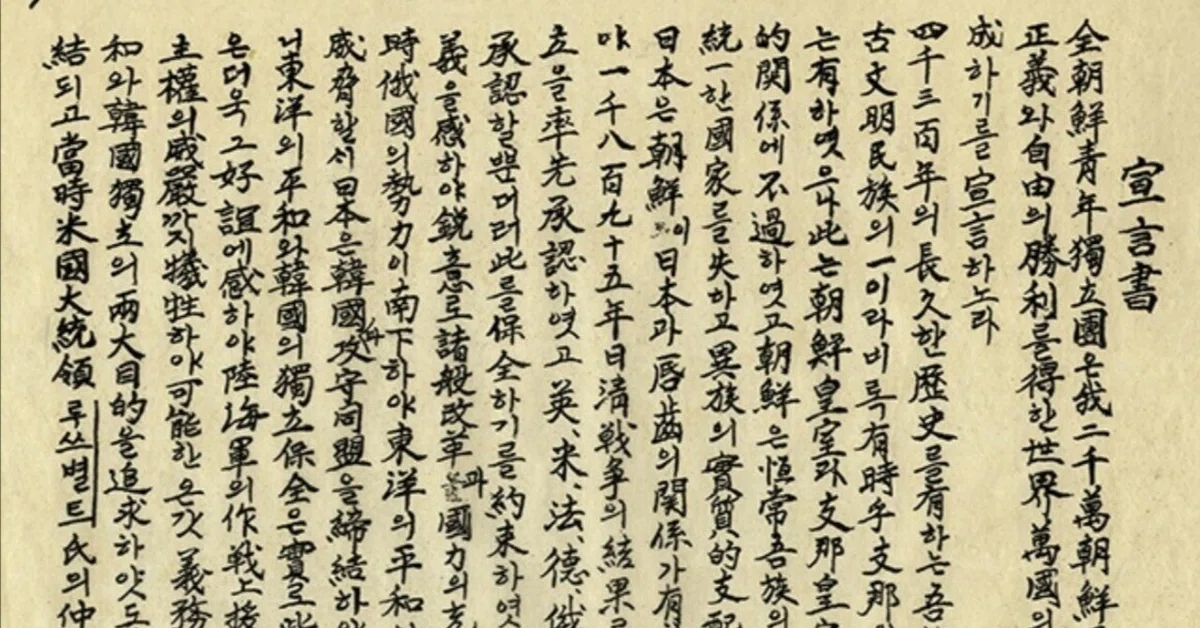 宣言書
全朝鮮青年獨立團은我二千萬朝鮮
正義와自由의勝利를得한世界萬國의
成하기를宣言하노라
四千三百年의長久한歷史를有하는吾
古文明民族의一이라비록有時乎支那
는有하엿으나此는朝鮮皇室과支那皇
的関係에不過하엿고朝鮮은恒常吾族의
統一한國家를失하고異族의實質的支配
日本은朝鮮이日本과唇齒의関係가有
야一千八百九十五年日清戦争의結果로
立을率先承認하엿고英、米、法、德、俄
承認할뿐더러此를保全하기를約束하엿
義을感하야鋭意로諸般改革과國力의充
時俄國의勢力이南下하야東洋의平和
威脅할시日本은韓國과攻守同盟을締結하야
니東洋의平和와韓國의獨立保全은實로此
은더욱그好誼에感하야陸海軍의作戦上援
主權의威嚴까지犠牲하야可能한온갖義務
和와韓國獨立의兩大目的을追求하얏도
結되고當時米國大統領루쓰벨트氏의仲